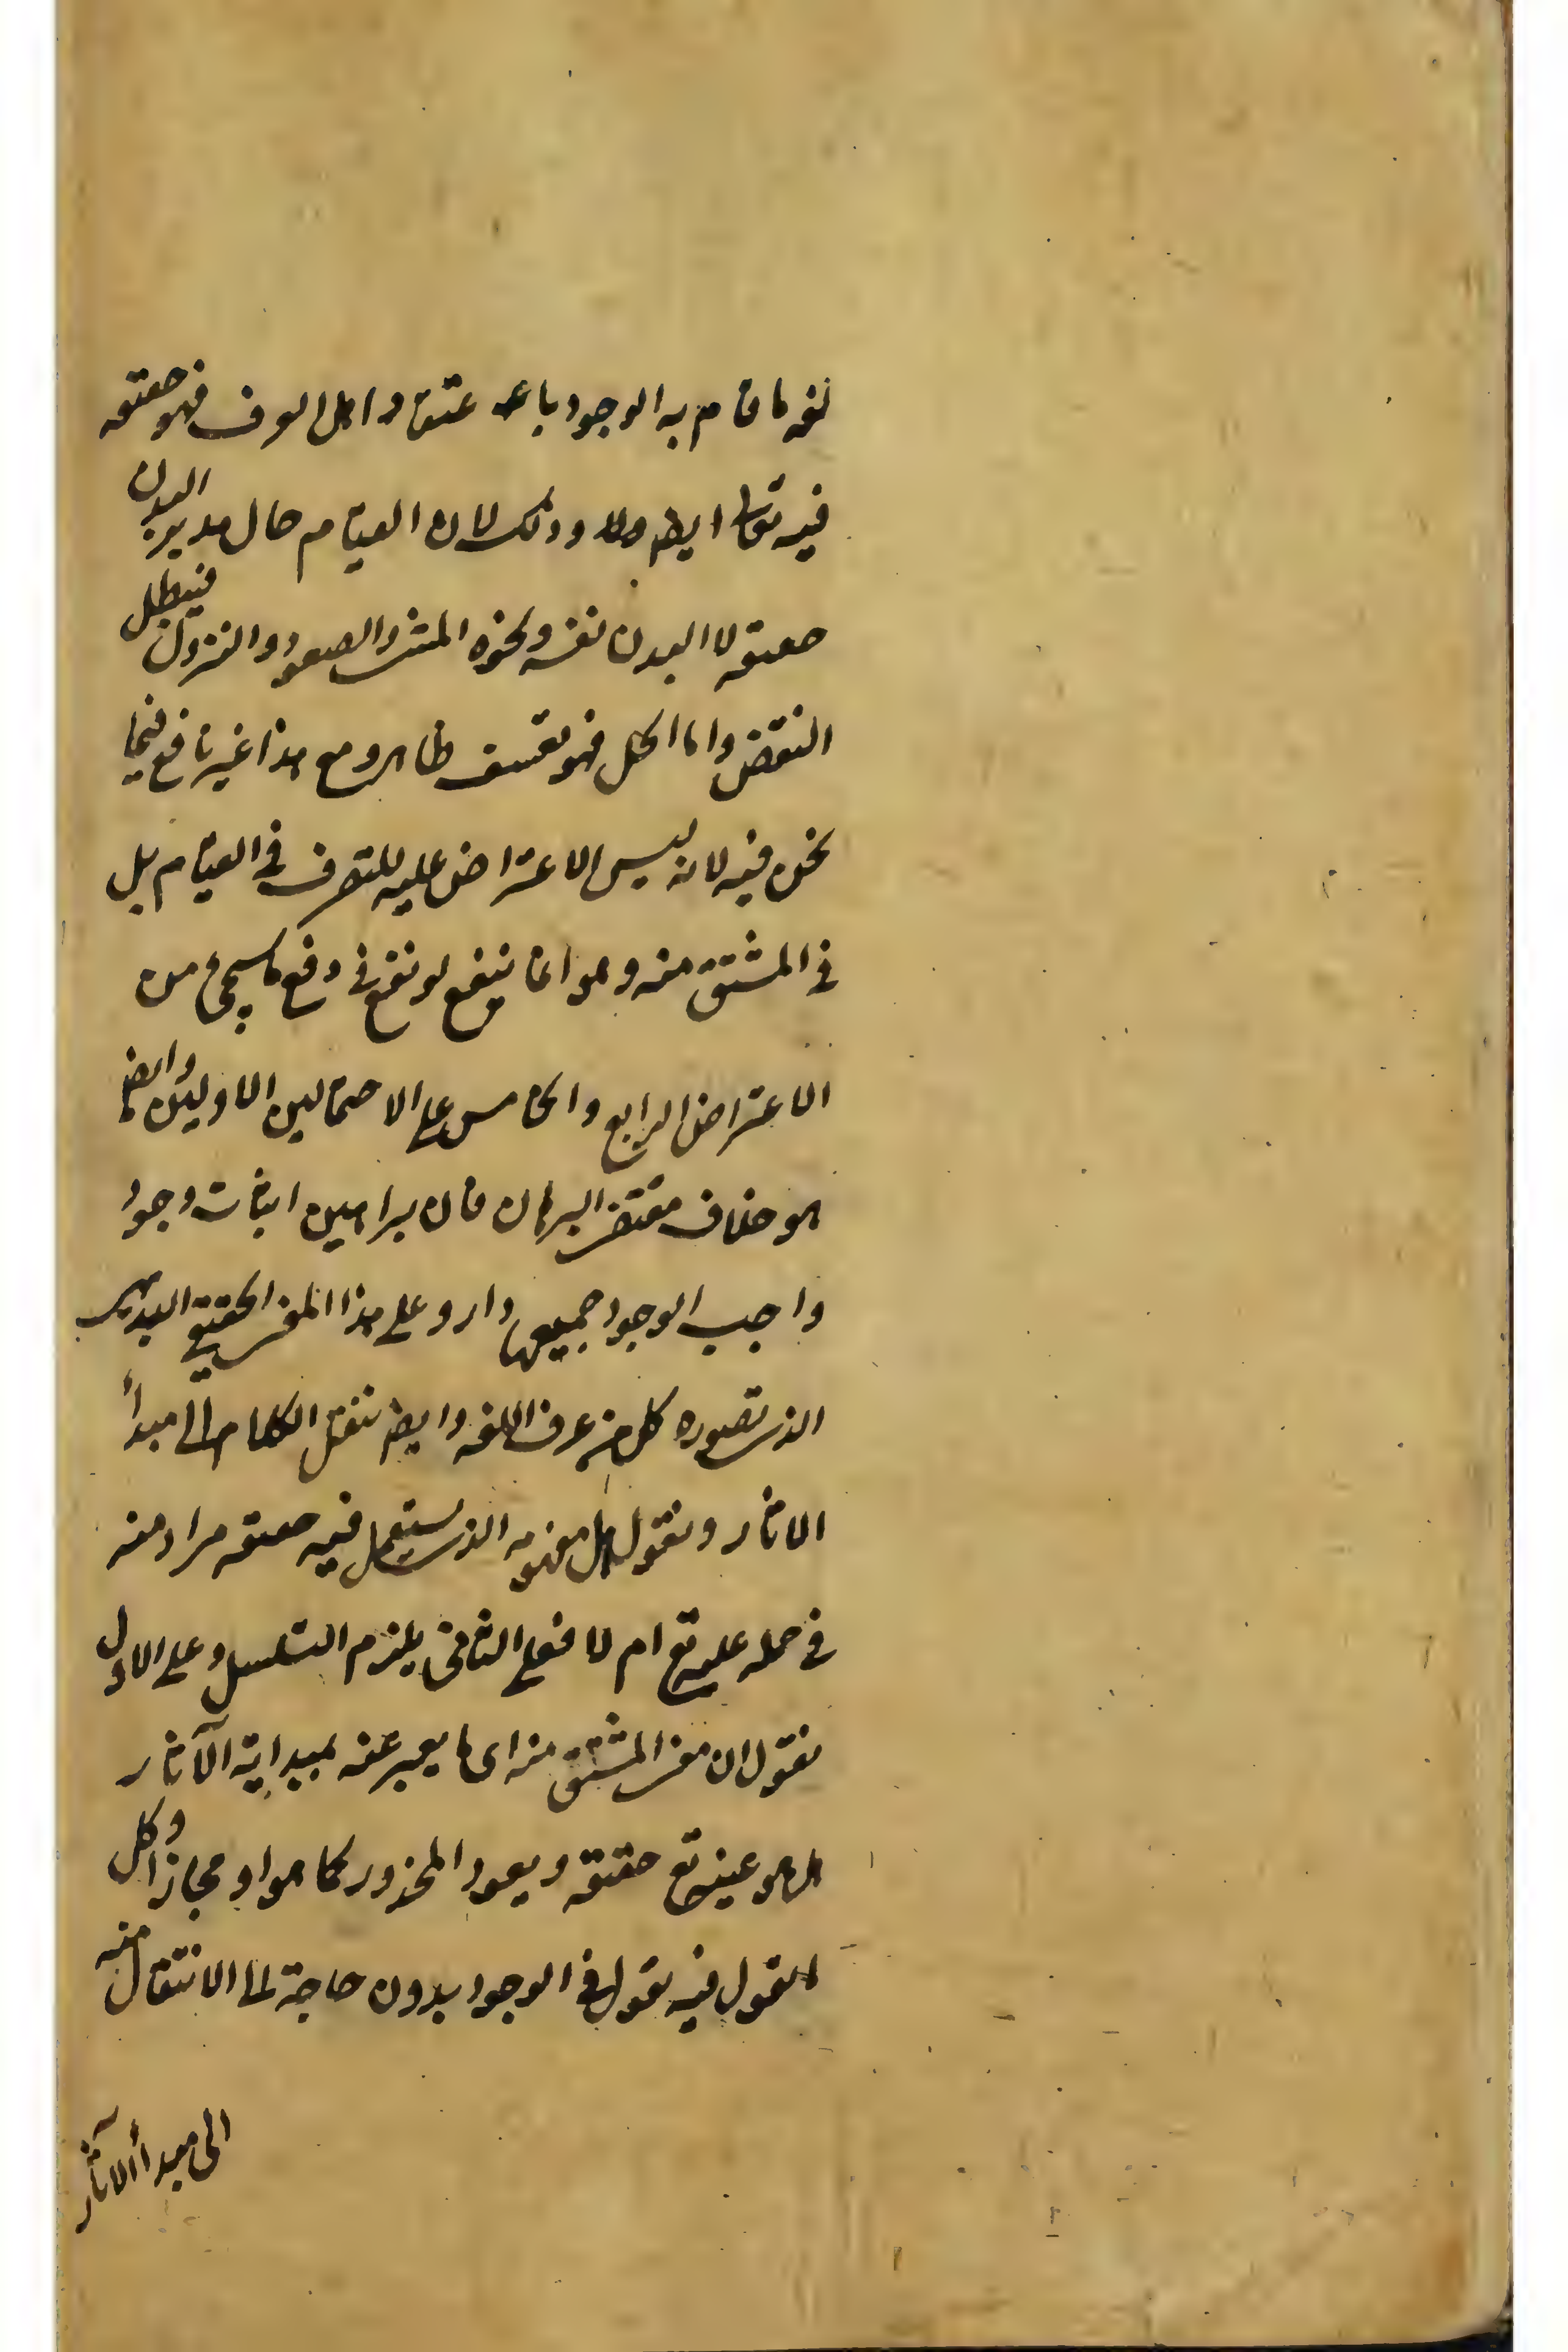 لغة ما قام به الوجود باعتقاد اهل العرف فهو حقيقة
فيه تعالى ايضا وذلك لان القيام حال مدبر البدن
حقيقة لا البدن نفسه ونحوه المشي والصعود والنزول فيبطل
النقض واما الحل فهو تعسف ظاهر ومع هذا غير نافع فيما
نحن فيه لانه ليس الاعتراض عليه للتصرف في القيام بل
في المشتق منه وهو انما ينفع لو نفع في دفع ما سيجيء من
الاعتراض الرابع والخامس على الاحتمالين الاولين وايضا
هو خلاف مقتضى البرهان فان براهين اثبات وجود
واجب الوجود جميعها دار وعلى هذا المعنى الحقيقي البديهي
الذي تصوره كل من عرف اللغة وايضا ننقل الكلام الى مبدأ
الاثار ونقول هل مفهومه الذي يستعمل فيه حقيقة مراد منه
في حمله عليه تع ام لا فعلى الثاني يلزم التسلسل وعلى الاول
نقول ان معنى المشتق منه اى ما يعبر عنه بمبدايّة الآثار
هل هو عينه تع حقيقة ويعود المحذور كما هو او مجازا وكل
القول فيه نقول في الوجود بدون حاجة لنا الانتقال منه
الى مبدأ الآثار